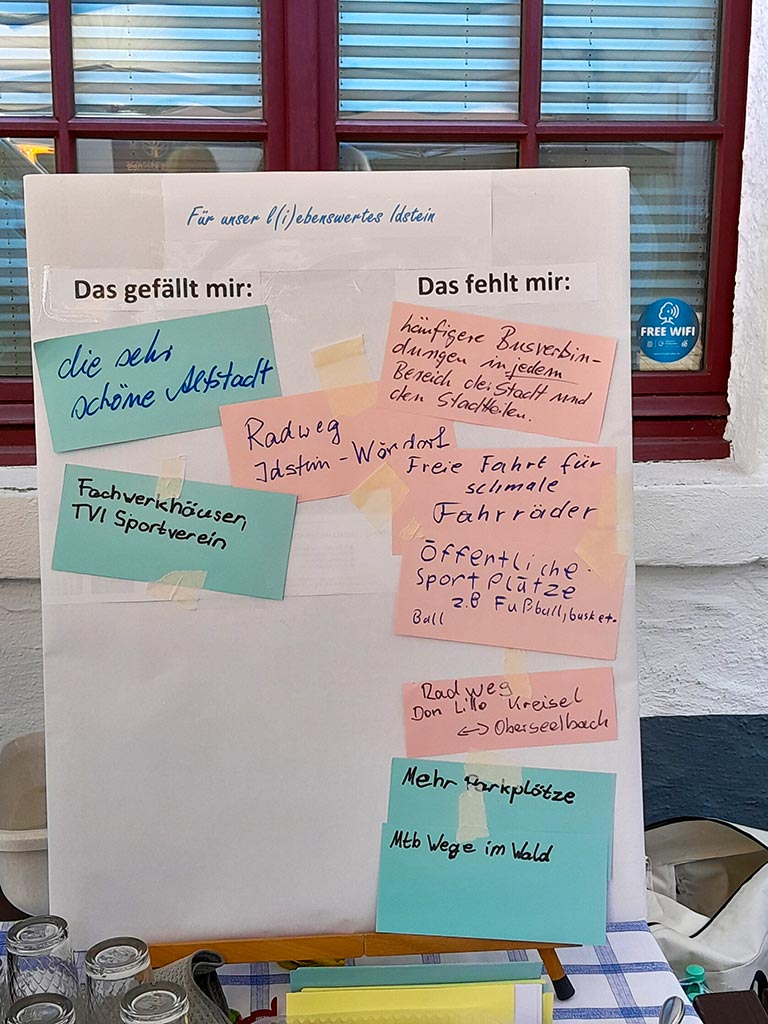 Für unser l(i)ebenswertes Idstein
Das gefällt mir:
die sehr
schöne Altstadt
Fachwerkhäuser,
TVI Sportverein
Das fehlt mir:
häufigere Busverbin-
dungen in jedem
Bereich der Stadt und
den Stadtteilen.
Radweg
Idstein - Wörsdorf
Freie Fahrt für
schmale
Fahrräder
Öffentliche
Sportplätze
z.B Fußball, basket-
Ball
Radweg
Don Lillo Kreisel
<-> Oberseelbach
Mehr Parkplätze
Mtb Wege im Wald
FREE WIFI